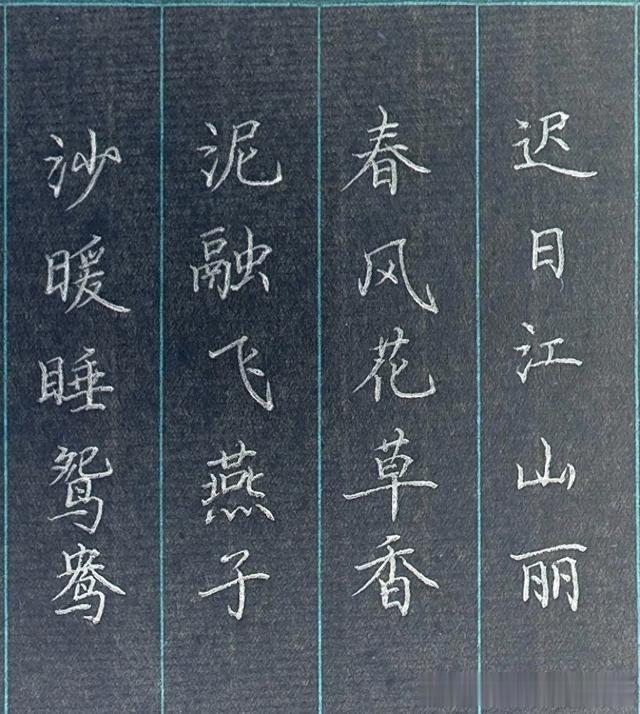 迟日江山丽
春风花草香
泥融飞燕子
沙暖睡鸳鸯